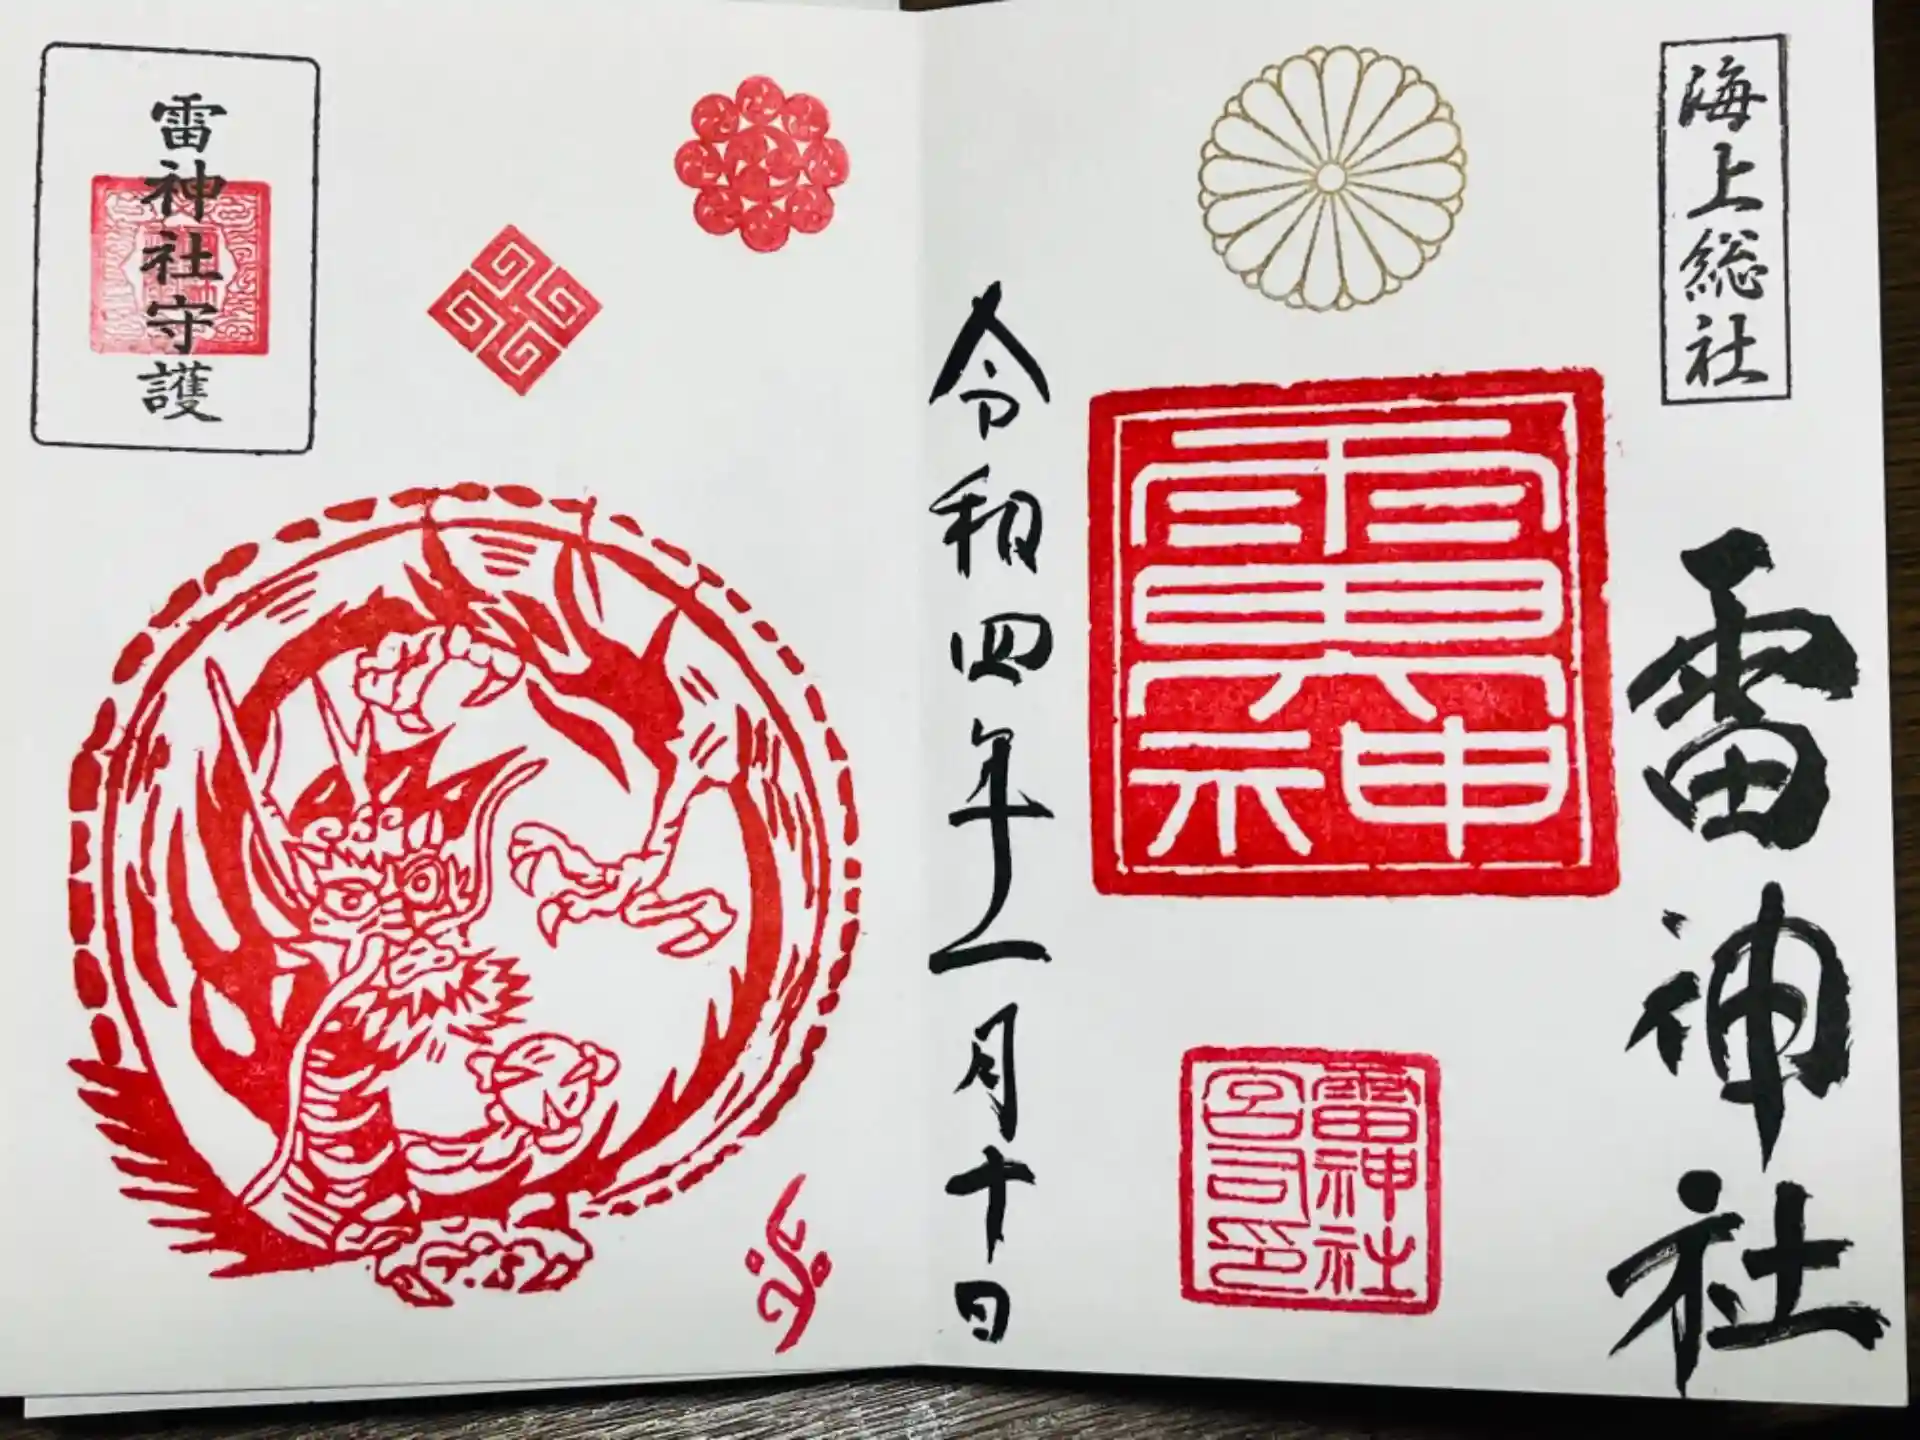 海上総社
雷神社
雷神
雷神社
宮司印
令和四年一月十日
雷神社守護